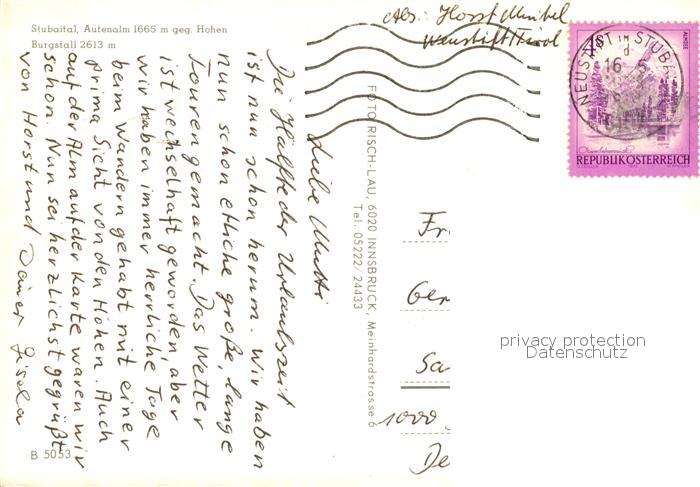 Stubaital, Autenalm 1665 m geg. Hohen
Burgstall 2613 m
Abs.: Horst
Neustift/Tirol
Liebe Mutti
Die Hälfte der Urlaubszeit
ist nun schon herum. Wir haben
nun schon etliche große, lange
Touren gemacht. Das Wetter
ist wechselhaft geworden aber
wir haben immer herrliche Tage
beim Wandern gehabt mit einer
prima Sicht von den Höhen. Auch
auf der Alm auf der Karte waren wir
schon. Nun sei herzlichst gegrüßt
von Horst und Deiner Gisela
B 5053
FOTO RISCH-LAU, 6020 INNSBRUCK, Meinhardstrasse 6
Tel. 05222/24433
NEUSTIFT IM STUB
16.5
4S
REPUBLIK ÖSTERREICH
Fr
Ger
Sa
1000
De
privacy protection
Datenschutz